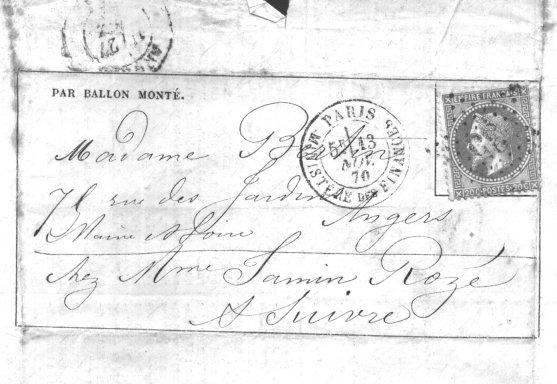 PAR BALLON MONTÉ.
PARIS
MINISTÈRE DES FINANCES
5E 13
70
EMPIRE FRANÇAIS
20C POSTES 20C
Madame
rue des Jardins
Angers
Maine & Loire
chez Mme Jamin Rozé
A Suivre